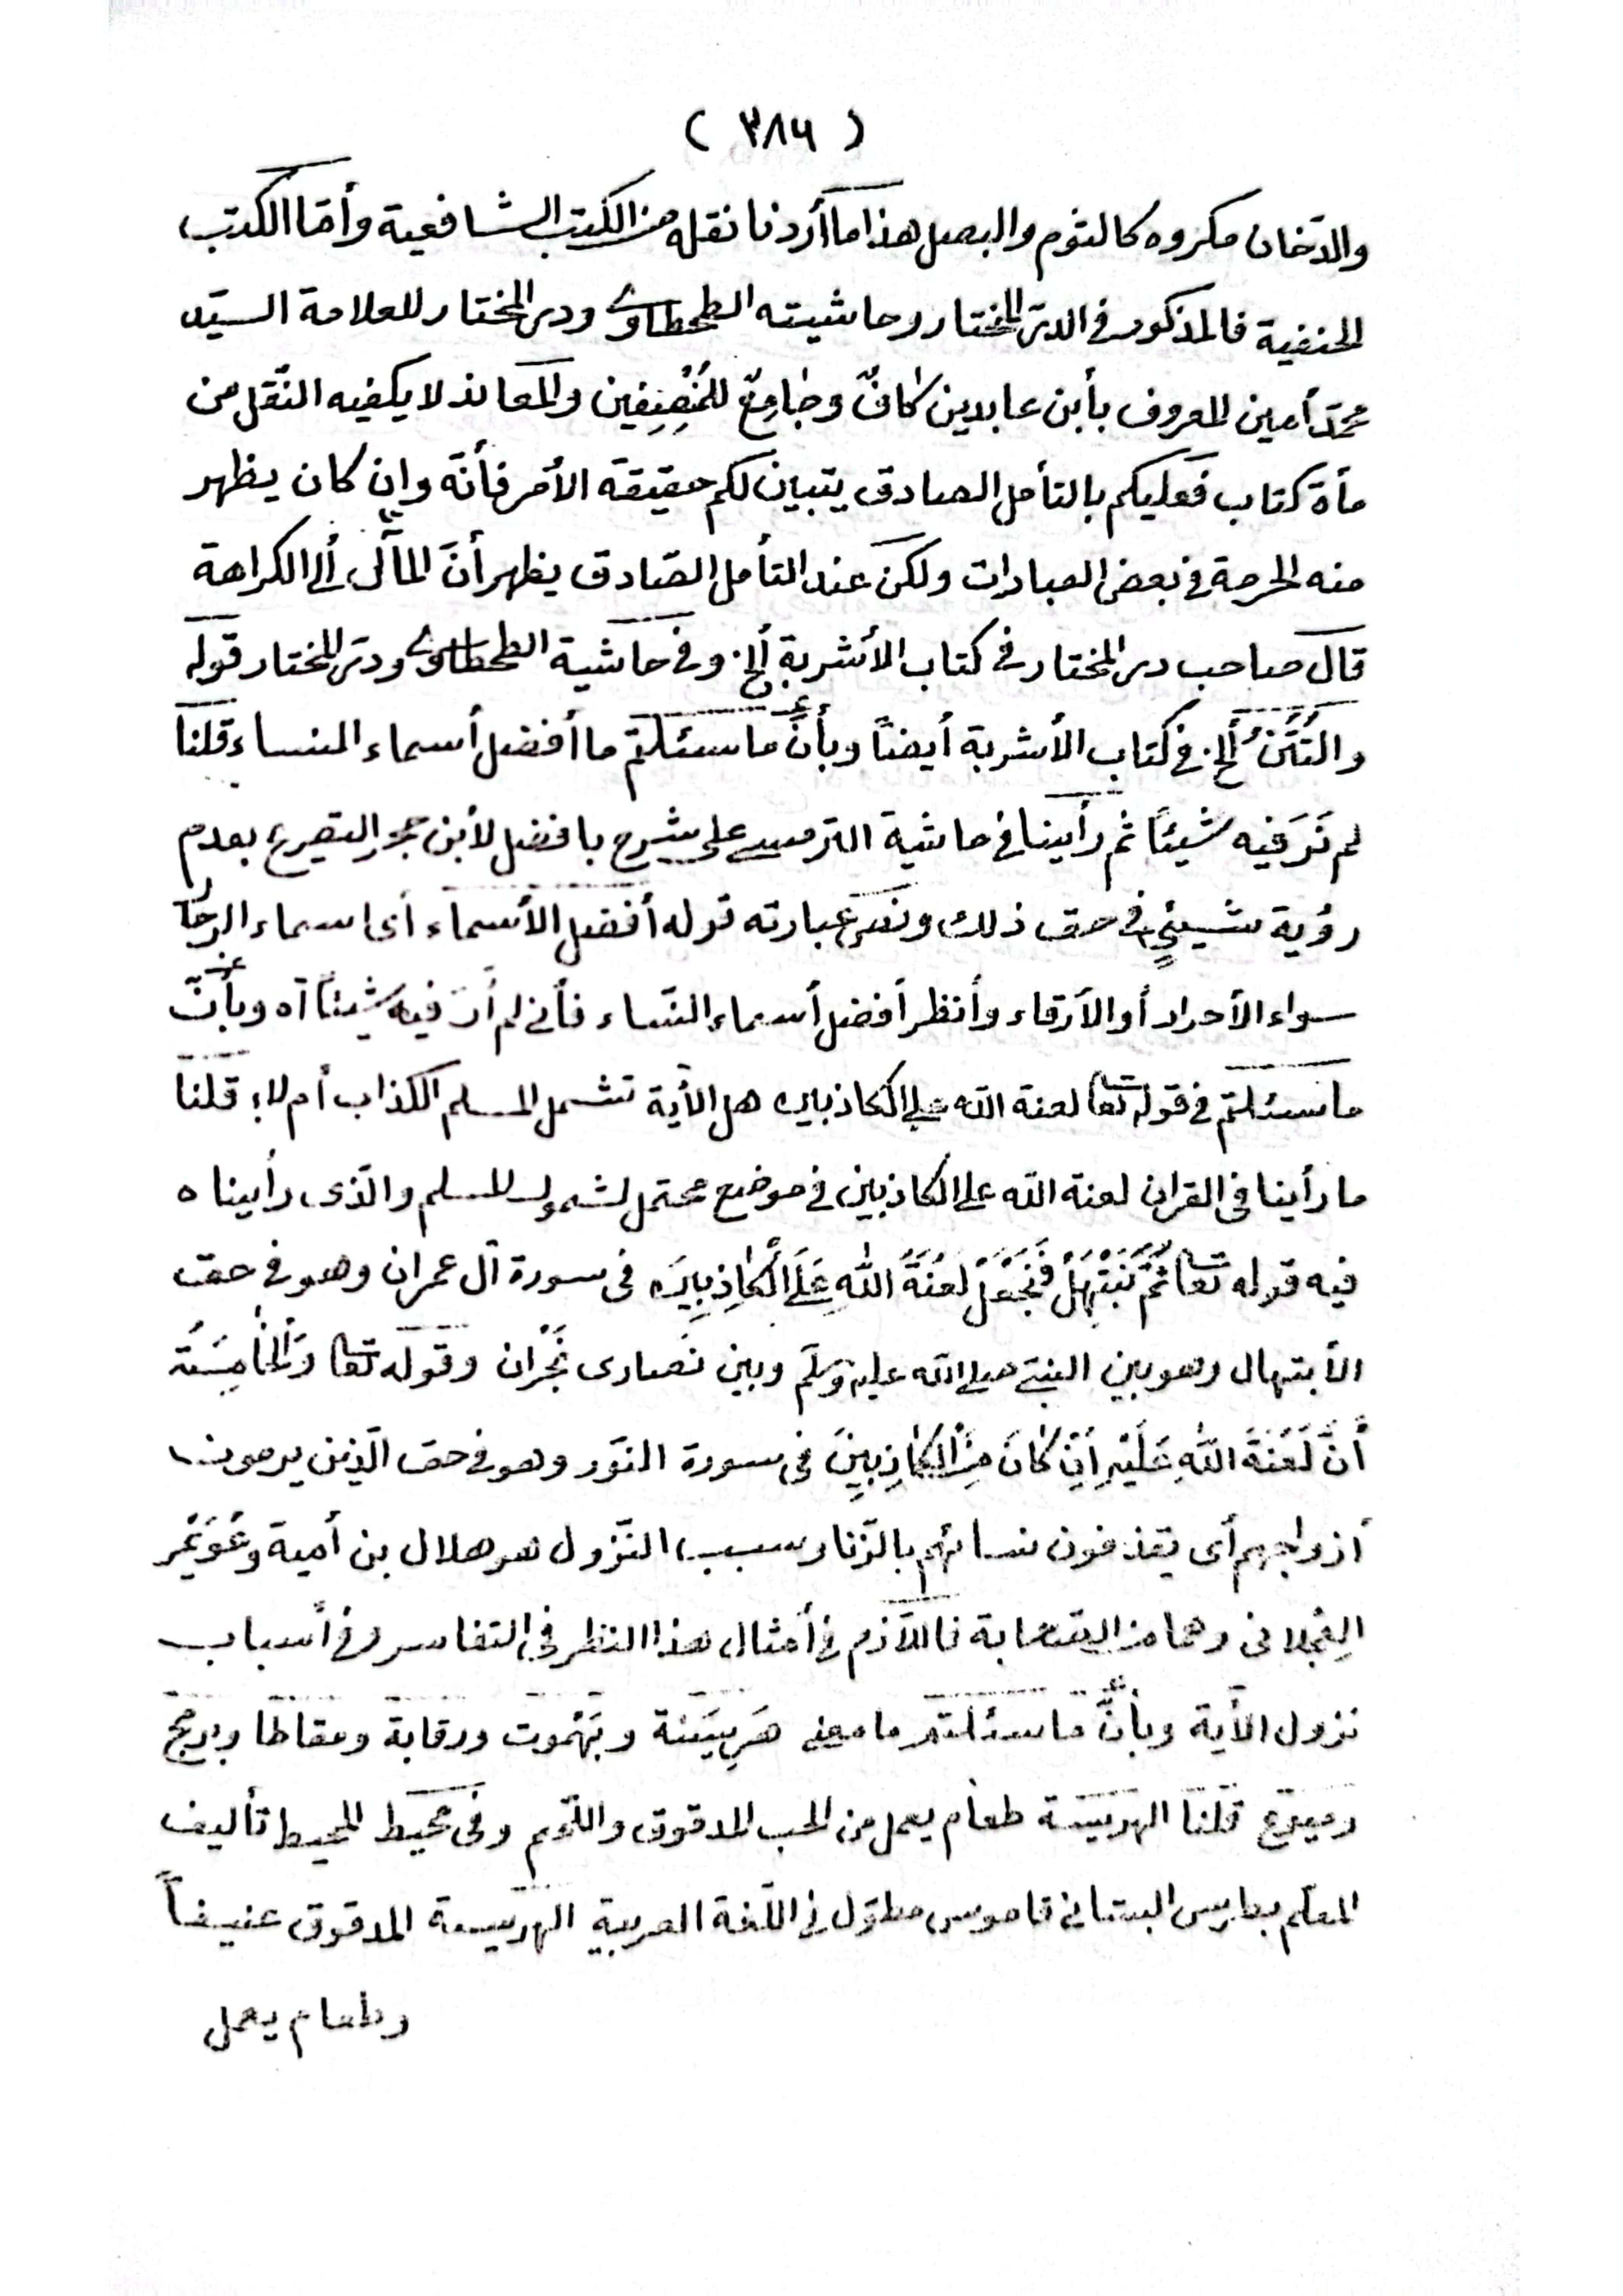 ( ٣٨٦ )
والدّخان مكروه كالثوم والبصل هذا ما أردنا نقله من الكتب الشافعية وأمّا الكتب
الحنفية فالمذكور فى الدرّ المختار وحاشيته الطحطاوى ودر المختار للعلامة السيّد
محمّد أمين المعروف بأبن عابدين كافىٌ وجَامِعٌ للمُنْصِفِين والمعاند لا يكفيه النّقل من
مأة كتاب فعليكم بالتأمل الصادق يتبيان لكم حقيقة الأمر فأنّه وان كان يظهر
منه الحرمة فى بعض العبارات ولكن عند التأمل الصّادق يظهر أنّ المآل ألى الكراهة
قال صاحب در المختار فى كتاب الأشربة ألخ. وفى حاشية الطحطاوى ودرّ المختار قوله
والتُّتُنُ ألخ. فى كتاب الأشربة أيضاً وبأنّ ما سئلتم ما أفضل أسماء النساء قلنا
لم نَرَ فيه شيئاً ثم رأينا فى حاشية الترمسى على شرح بافضل لأبن حجر التصريح بعدم
رؤية شيئىٍ فى حق ذلك ونصّ عبارته قوله أفضل الأسماء أى اسماء الرجال
سواء الأحرار أو الأرقاء وأنظر أفضل أسماء النّساء فأنى لم أرَ فيه شيئاً اه وبأنّ
ما سئلتم فى قوله تعا لعنة الله على الكاذبين هل الأية تشمل المسلم الكذاب أم لا؛ قلنا
ما رأينا فى القران لعنة الله على الكاذبين فى موضع محتمل لشمول للمسلم والّذى رأيناه
فيه قوله تعا ثُمَّ نَبْتَهِلْ فَنَجْعَلْ لَعْنَةَ اللهِ عَلَى الْكَاذِبِينَ فى سورة آل عمران وهو فى حق
الأبتهال وهو بين النبىّ صلى الله عليه وسلّم وبين نصارى نَجْران وقوله تعا وَالْخَامِسَةُ
أَنَّ لَعْنَةَ اللهِ عَلَيْهِ اِنْ كَانَ مِنَ الْكَاذِبِينَ فى سورة النّور وهو فى حق الّذين يرمون
أزواجهم أى يقذفون نسائهم بالزّنا وسبب النّزول هو هلال بن أمية وعُوَيْمر
العِجْلانى وهما من الصّحابة فاللّازم فى أمثال هذا النظر فى التفاسر وفى أسباب
نزول الأية وبأنّ ما سئلتم ما معنى هَرِيسَة وبَهْموت ورقابة ومقاطا
قلنا الهريسة طعام يعمل من الحب المدقوق واللّحم وفى محيط المحيط تأليف
المعلّم بطرس البستانى قاموس مطوّل فى اللّغة العربية الهريسة المدقوق عنيفاً
وطعام يعمل